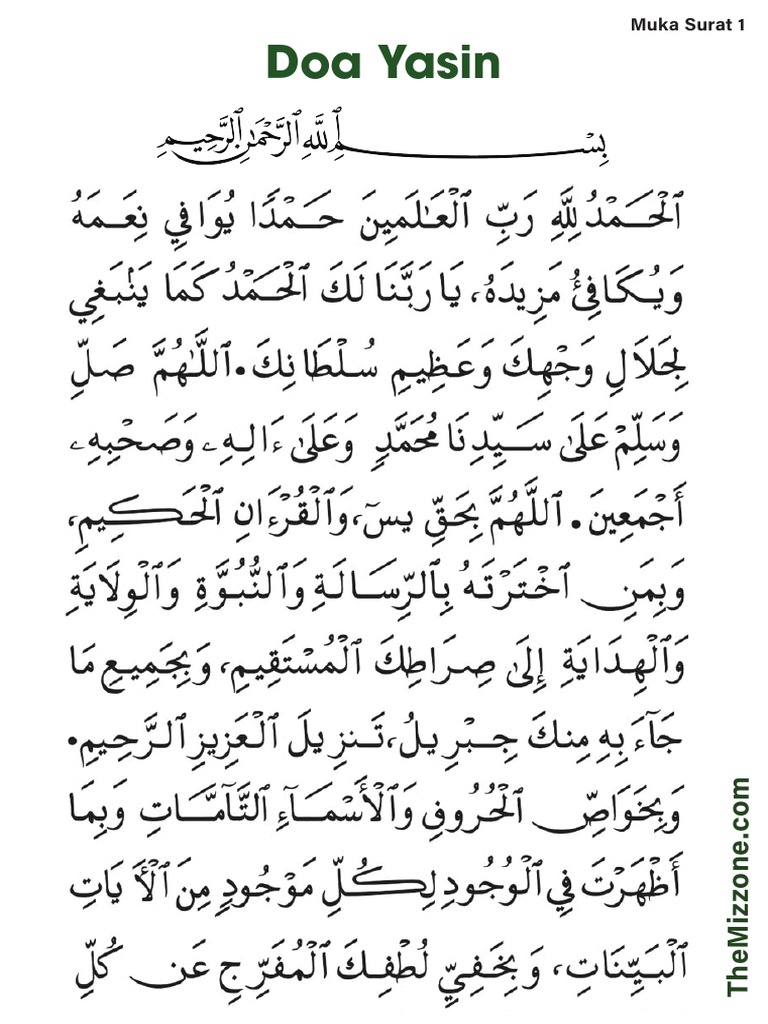 Muka Surat 1
Doa Yasin
بِسْمِ ٱللَّهِ ٱلرَّحْمَٰنِ ٱلرَّحِيمِ
ٱلْحَمْدُ لِلَّهِ رَبِّ ٱلْعَٰلَمِينَ حَمْدًا يُوَافِي نِعَمَهُ
وَيُكَافِئُ مَزِيدَهُ، يَا رَبَّنَا لَكَ ٱلْحَمْدُ كَمَا يَنْبَغِي
لِجَلَالِ وَجْهِكَ وَعَظِيمِ سُلْطَانِكَ. ٱللَّٰهُمَّ صَلِّ
وَسَلِّمْ عَلَىٰ سَيِّدِنَا مُحَمَّدٍ وَعَلَىٰ ءَالِهِۦ وَصَحْبِهِۦ
أَجْمَعِينَ. ٱللَّهُمَّ بِحَقِّ يسٓ، وَٱلْقُرْءَانِ ٱلْحَكِيمِ،
وَبِمَنِ ٱخْتَرْتَهُ بِٱلرِّسَالَةِ وَٱلنُّبُوَّةِ وَٱلْوِلَايَةِ
وَٱلْهِدَايَةِ إِلَىٰ صِرَاطِكَ ٱلْمُسْتَقِيمِ، وَبِجَمِيعِ مَا
جَآءَ بِهِ مِنكَ جِبْرِيلُ، تَنزِيلَ ٱلْعَزِيزِ ٱلرَّحِيمِ.
وَبِخَوَاصِّ ٱلْحُرُوفِ وَٱلْأَسْمَآءِ ٱلتَّآمَّاتِ وَبِمَا
أَظْهَرْتَ فِي ٱلْوُجُودِ لِكُلِّ مَوْجُودٍ مِنَ ٱلْآيَاتِ
ٱلْبَيِّنَاتِ، وَبِخَفِيِّ لُطْفِكَ ٱلْمُفَرِّجِ عَن كُلِّ
TheMizzone.com